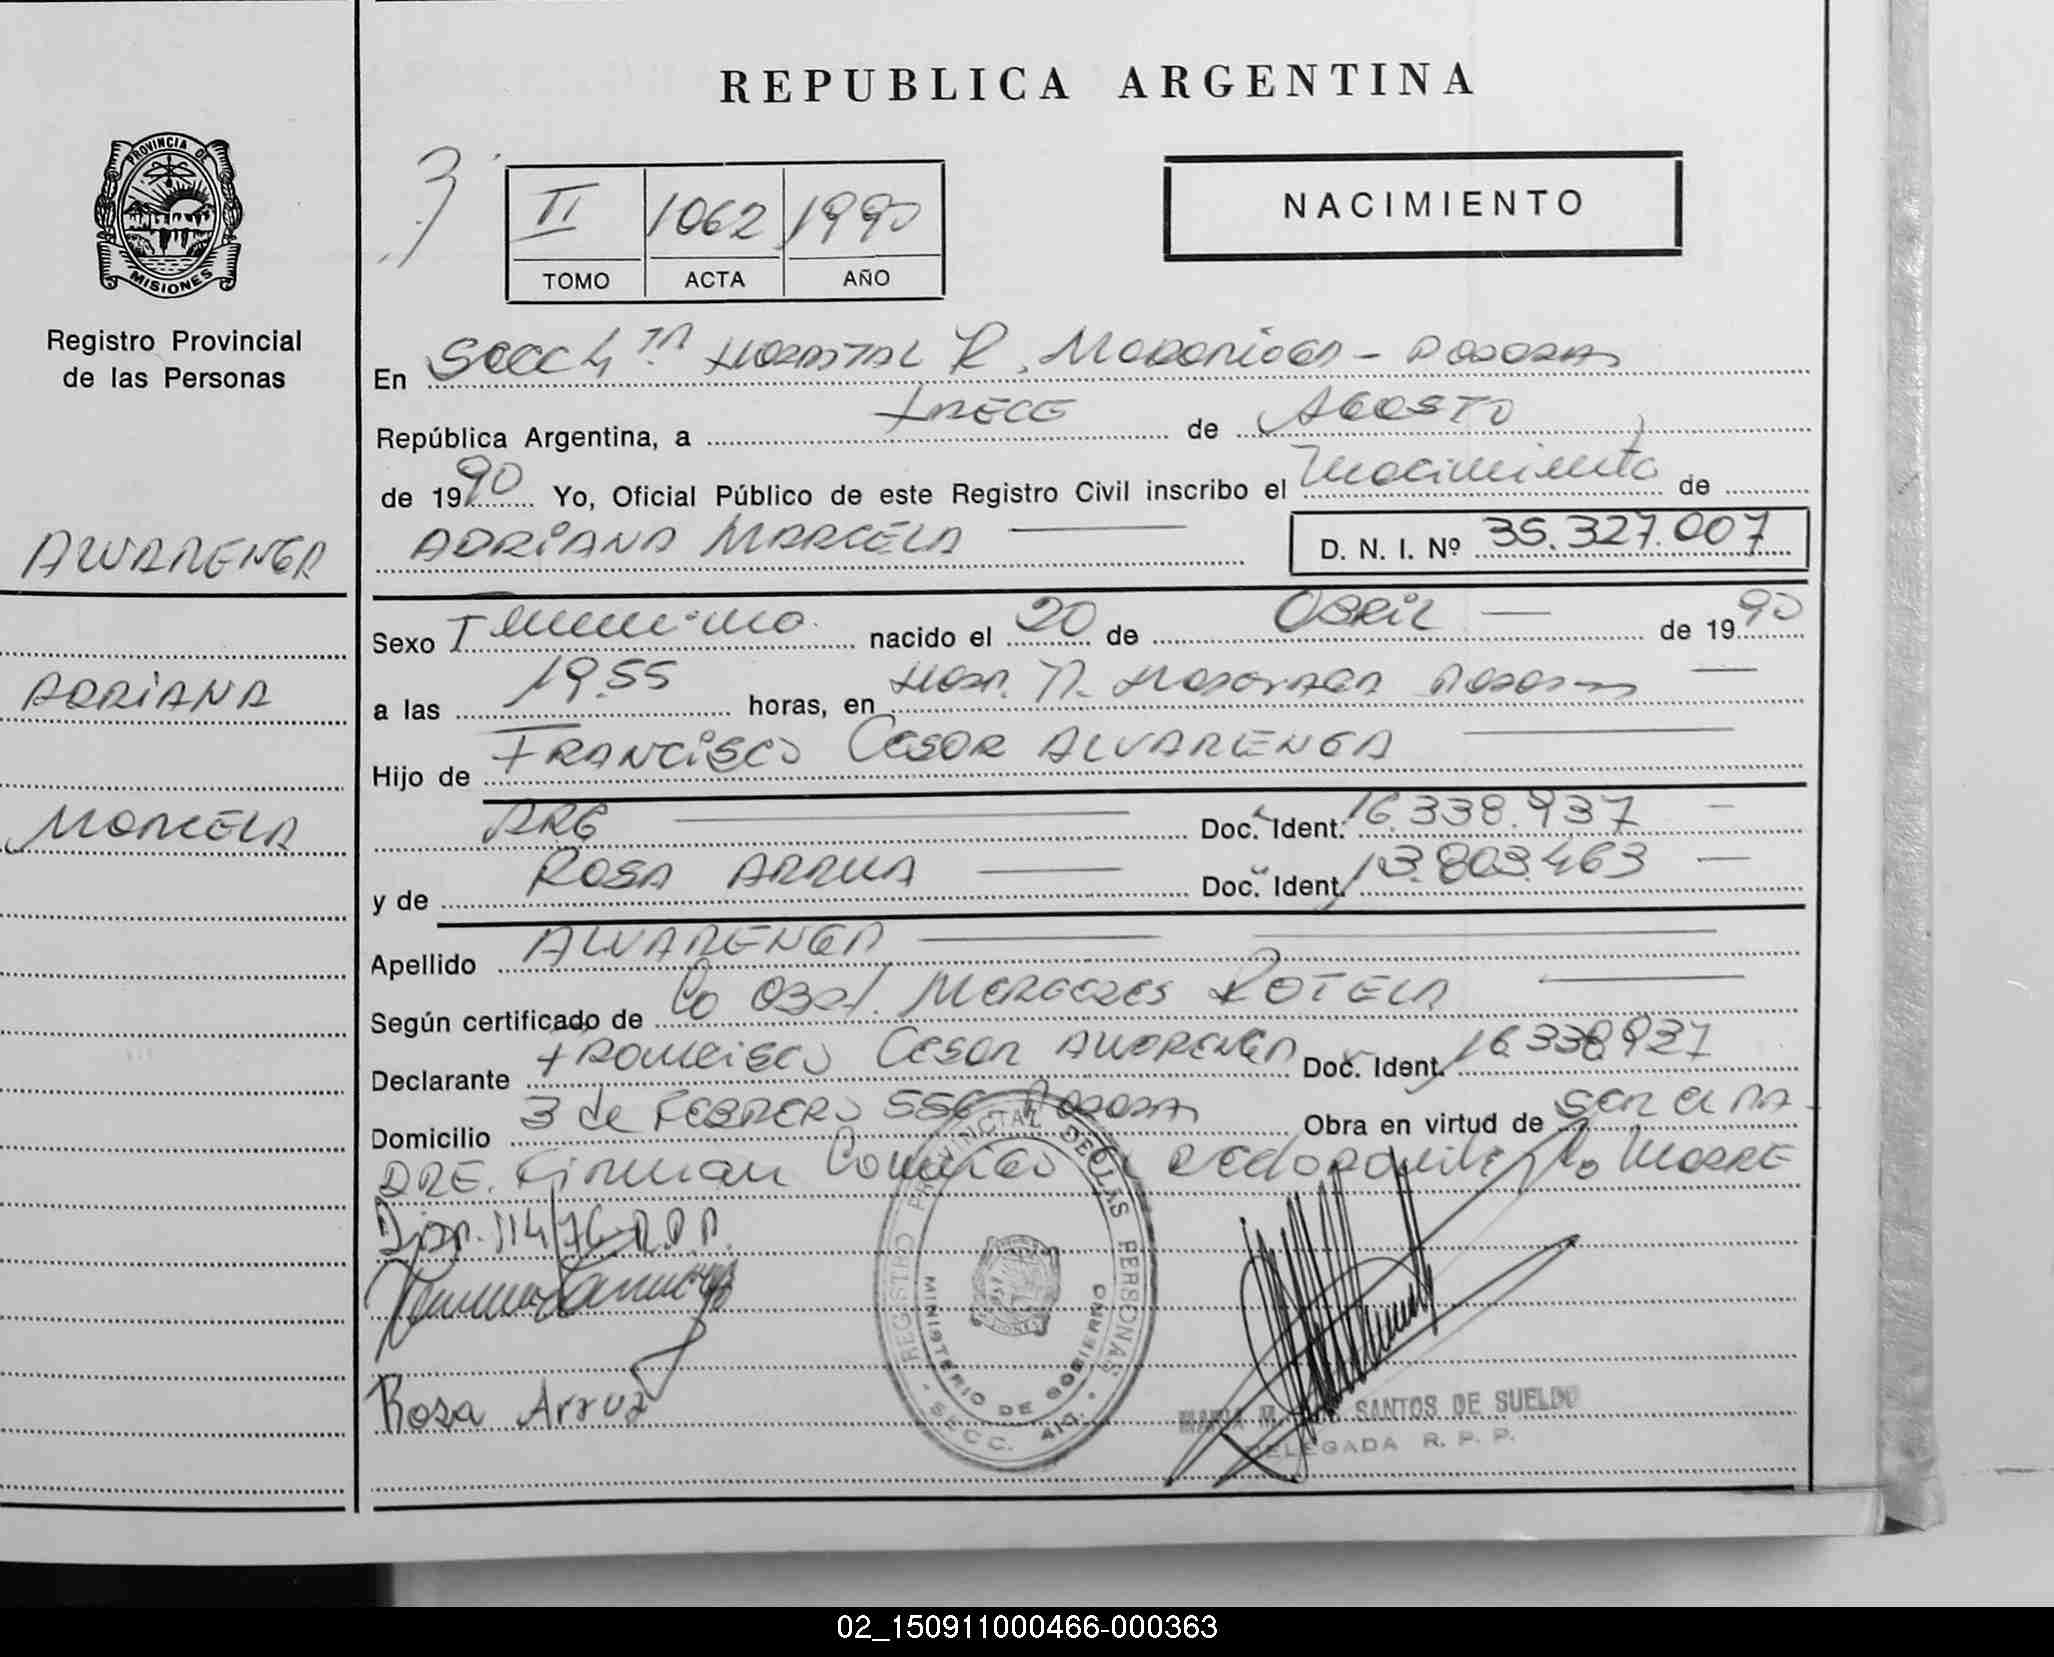 REPUBLICA ARGENTINA
PROVINCIA DE
MISIONES
Registro Provincial
de las Personas
3
II 1062 1990
TOMO ACTA AÑO
NACIMIENTO
En Secc 4ta Hospital R. Madariaga - Posadas
República Argentina, a trece de Agosto
de 1990 Yo, Oficial Público de este Registro Civil inscribo el nacimiento de
ADRIANA MARCELA D. N. I. Nº 35.327.007
ALVARENGA
ADRIANA
MARCELA
Sexo Femenino nacido el 20 de Abril de 1990
a las 19.55 horas, en Hosp. R. Posadas
Hijo de FRANCISCO CESAR ALVARENGA
ARG Doc. Ident. 16.338.937
y de ROSA ARRUA Doc. Ident. 13.803.463
Apellido ALVARENGA
Según certificado de la Obst. MERCEDES ROTELA
Declarante FRANCISCO CESAR ALVARENGA Doc. Ident. 16.338.937
Domicilio 3 de FEBRERO 556 Posadas Obra en virtud de ser el PA
DRE. Firman la MADRE
Disp. 114/76 R.P.P.
Rosa Arrua
REGISTRO PROVINCIAL DE LAS PERSONAS
MINISTERIO DE GOBIERNO
SECC. 4ta.
MARIA SANTOS DE SUELDO
DELEGADA R. P. P.
02_150911000466-000363